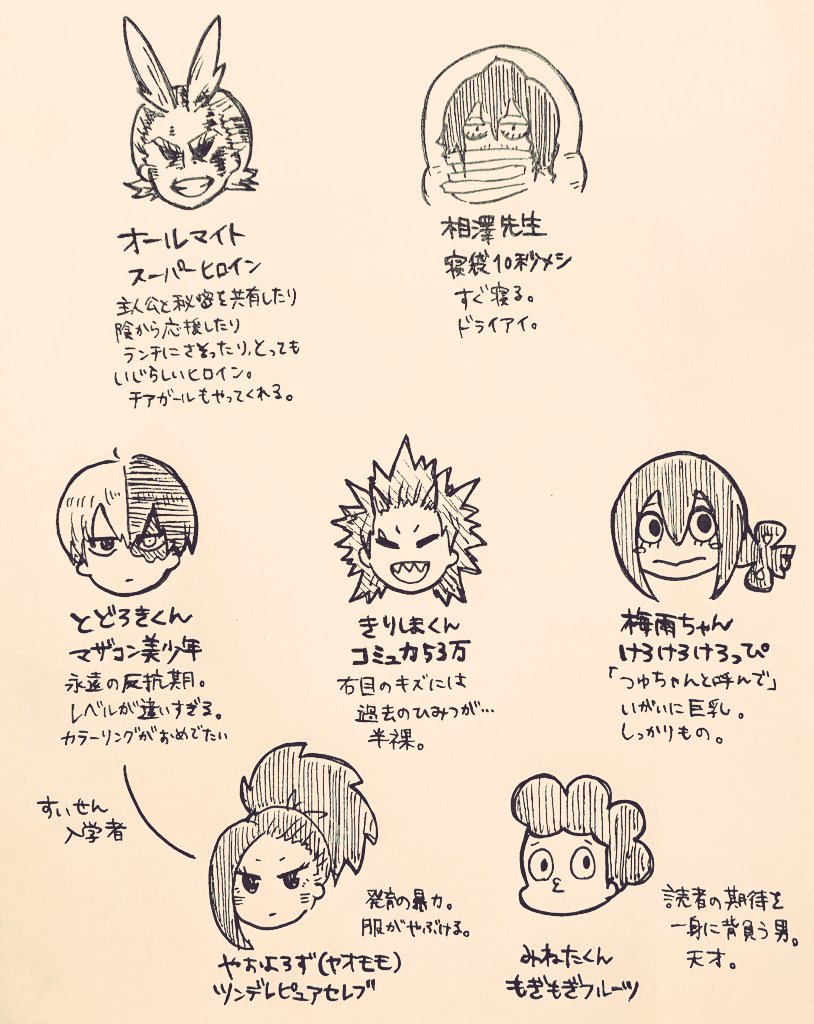 オールマイト
スーパーヒロイン
主人公と秘密を共有したり
陰から応援したり
ランチにさそったり、とっても
いじらしいヒロイン。
チアガールもやってくれる。
相澤先生
寝袋10秒メシ
すぐ寝る。
ドライアイ。
とどろきくん
マザコン美少年
永遠の反抗期。
レベルが違いすぎる。
カラーリングがおめでたい
きりしまくん
コミュ力53万
右目のキズには
過去のひみつが…
半裸。
梅雨ちゃん
けろけろけろっぴ
「つゆちゃんと呼んで」
いがいに巨乳。
しっかりもの。
すいせん
入学者
発育の暴力。
服がやぶける。
やおよろず(ヤオモモ)
ツンデレピュアセレブ
読者の期待を
一身に背負う男。
天才。
みねたくん
もぎもぎフルーツ